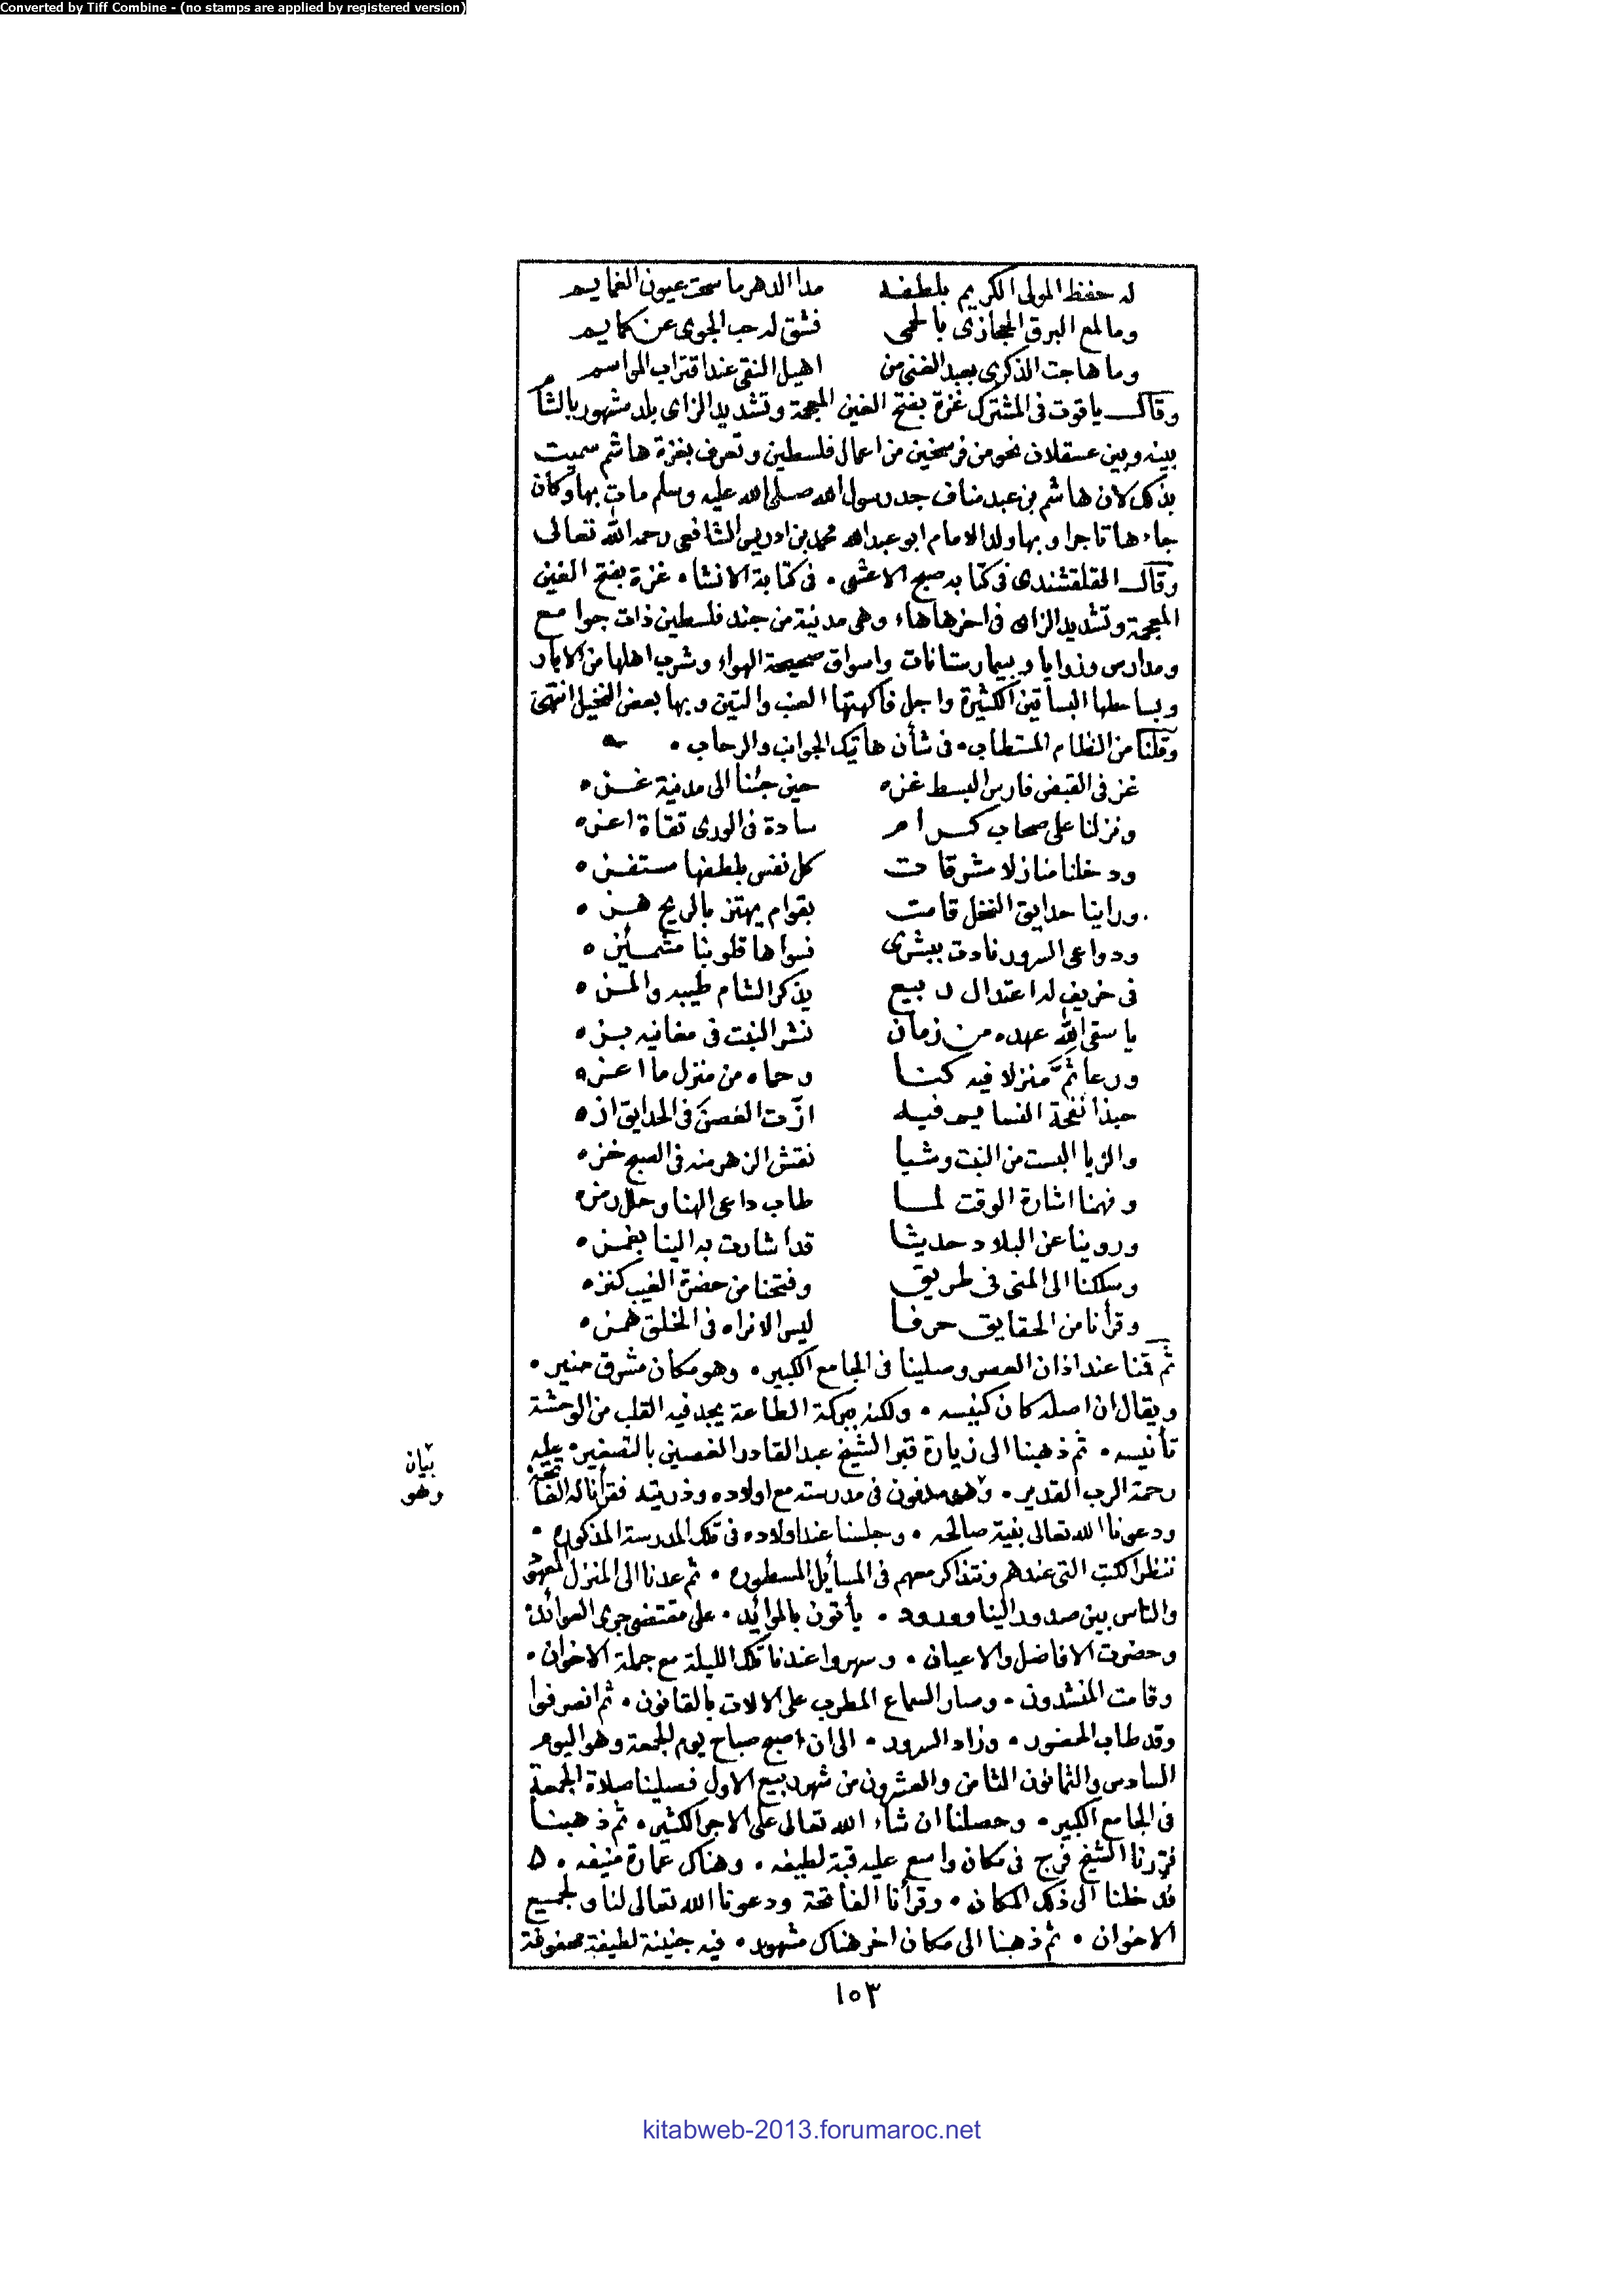 Converted by Tiff Combine - (no stamps are applied by registered version)
له حفظ المولى الكريم بلطفه مدا الدهر ما سحت عيون الغمايم
وما لمع البرق الحجازى بالحمى فشق له جب الجوى عن كمايم
وما هاجت الذكرى بعبد الغنى من اهيل النقى عند اقتراب المواسم
وقال ياقوت فى المشترك غزة بفتح الغين المعجمة وتشديد الزاى بلد مشهور بالشام
بينه وبين عسقلان نحو من فرسخين من اعمال فلسطين وتعرف بغزة هاشم سميت
بذلك لان هاشم بن عبد مناف جد رسول الله صلى الله عليه وسلم مات بها وكان
جاءها تاجرا وبها ولد الامام ابو عبد الله محمد بن ادريس الشافعى رحمه الله تعالى
وقال القلقشندى فى كتابه صبح الاعشى . فى كتابة الانشاء غزة بفتح الغين
المعجمة وتشديد الزاى فى اخرها هاء وهى مدينة من جند فلسطين ذات جوامع
ومدارس وزوايا وبيمارستانات واسواق صحيحة الهواء وشرب اهلها من الابار
وبساحلها البساتين الكثيرة واجل فاكهتها العنب والتين وبها بعض النخيل انتهى
وقلنا من النظام المستطاب . فى شأن هاتيك الجوانب والرحاب .
غز فى القبض فارس البسط غزه حين جئنا الى مدينة غزه
ونزلنا على صحاب كرام سادة فى الورى تقاة اعزه
ودخلنا منازلا مشرقات كل نفس بلطفها مستفزه
وراينا حدايق النخل قامت بقوام يهتز بالريح هزه
ودواعى السرور نادت ببشرى نسواها قلوبنا مشمئزه
فى خريف له اعتدال ربيع يذكر الشام طيبه والمزه
يا سقى الله عهده من زمان نشر النبت فى مغانيه بزه
ورعا ثم منزلا فيه كنا وحماه من منزل ما اعزه
حبذا نفحة النسايم فيه ازت الغصن فى الحدايق ازه
والربا البست من النبت وشيا نقش الزهر منه فى الصبح خزه
وفهمنا اشارة الوقت لما طاب داعى الهنا وحل رمزه
وروينا عن البلاد حديثا قد اشارت به الينا بغمزه
وسلكنا الى المنى فى طريق وفتحنا من حضرة الغيب كنزه
وقرأنا من الحقايق حرفا ليس الا نراه فى الخلق همزه
ثم قمنا عند اذان العصر وصلينا فى الجامع الكبير . وهو مكان مشرق منير .
ويقال ان اصله كان كنيسه . ولكنه ببركة الطاعة يجد فيه القلب من الوحشة
تأنيسه . ثم ذهبنا الى زيارة قبر الشيخ عبد القادر الغصين بالتصغير . عليه
رحمة الرب القدير . وهو مدفون فى مدرسته مع اولاده وذريته فقرأنا له الفاتحة
بيان
وهو
ودعونا الله تعالى بنية صالحه . وجلسنا عند اولاده فى تلك المدرسة المذكوره .
ننظر الكتب التى عندهم ونتذاكر معهم فى المسايل المسطوره . ثم عدنا الى المنزل المعهود
والناس بين صدور الينا وورود . يأتون بالموائد . على مقتضى جرى العوائد .
وحضرت الافاضل والاعيان . وسهروا عندنا تلك الليلة مع جملة الاخوان .
وقامت المنشدون . وصار السماع المطرب على الالات بالقانون . ثم انصرفوا
وقد طاب الحضور . وزاد السرور . الى ان اصبح صباح يوم الجمعة وهو اليوم
السادس والثمانون الثامن والعشرون من شهر ربيع الاول فصلينا صلاة الجمعة
فى الجامع الكبير . وحصلنا ان شاء الله تعالى على الاجر الكثير . ثم ذهبنا
فزرنا الشيخ فرج فى مكان واسع عليه قبة لطيفه . وهناك عمارة منيفه .
فدخلنا الى ذلك المكان . وقرأنا الفاتحة ودعونا الله تعالى لنا ولجميع
الاخوان . ثم ذهبنا الى مكان اخر هناك مشهور . فيه جنينة لطيفة محفوفة
١٠٣
kitabweb-2013.forumaroc.net